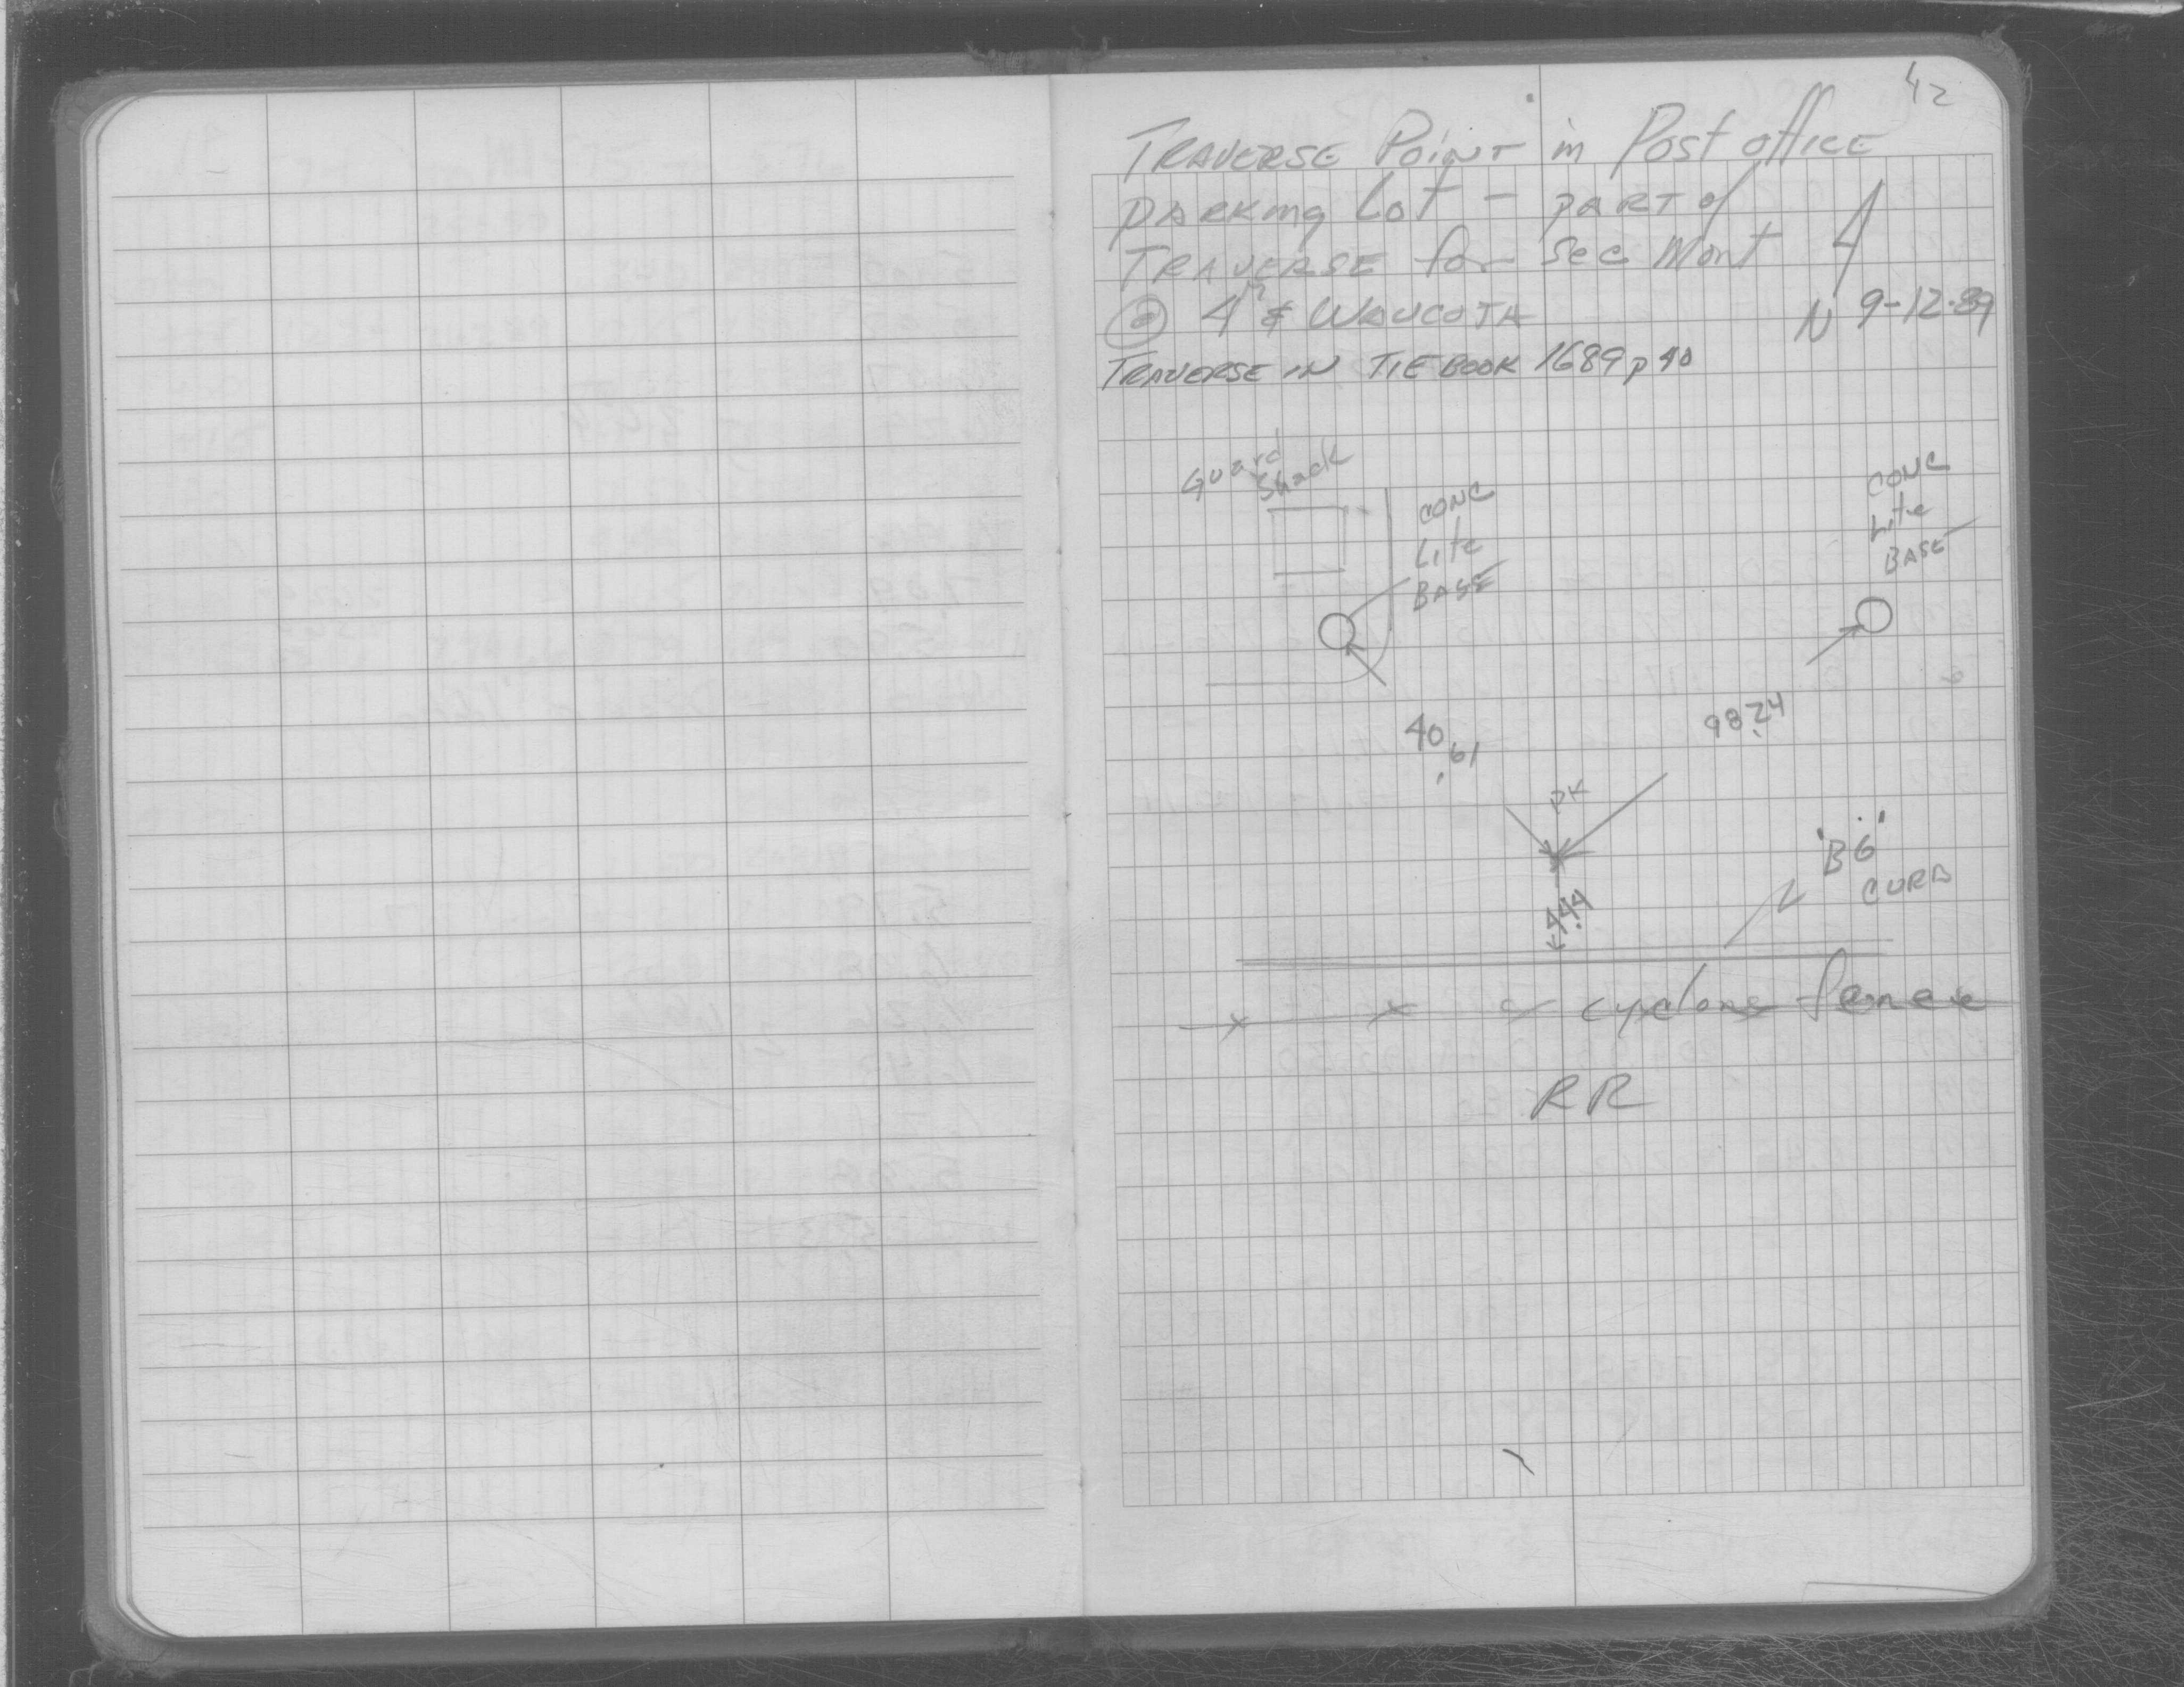 42
TRAVERSE POINT in Post office
PARKING Lot - PART of
TRAVERSE for Sec Mont
@ 4th & WAUCOTA
N 9-12-89
TRAVERSE IN TIE BOOK 1689 p 40
Guard
Shack
CONC
Lite
BASE
CONC
Lite
BASE
40.61
98.24
PK
4.44
"B6"
CURB
cyclone fence
RR